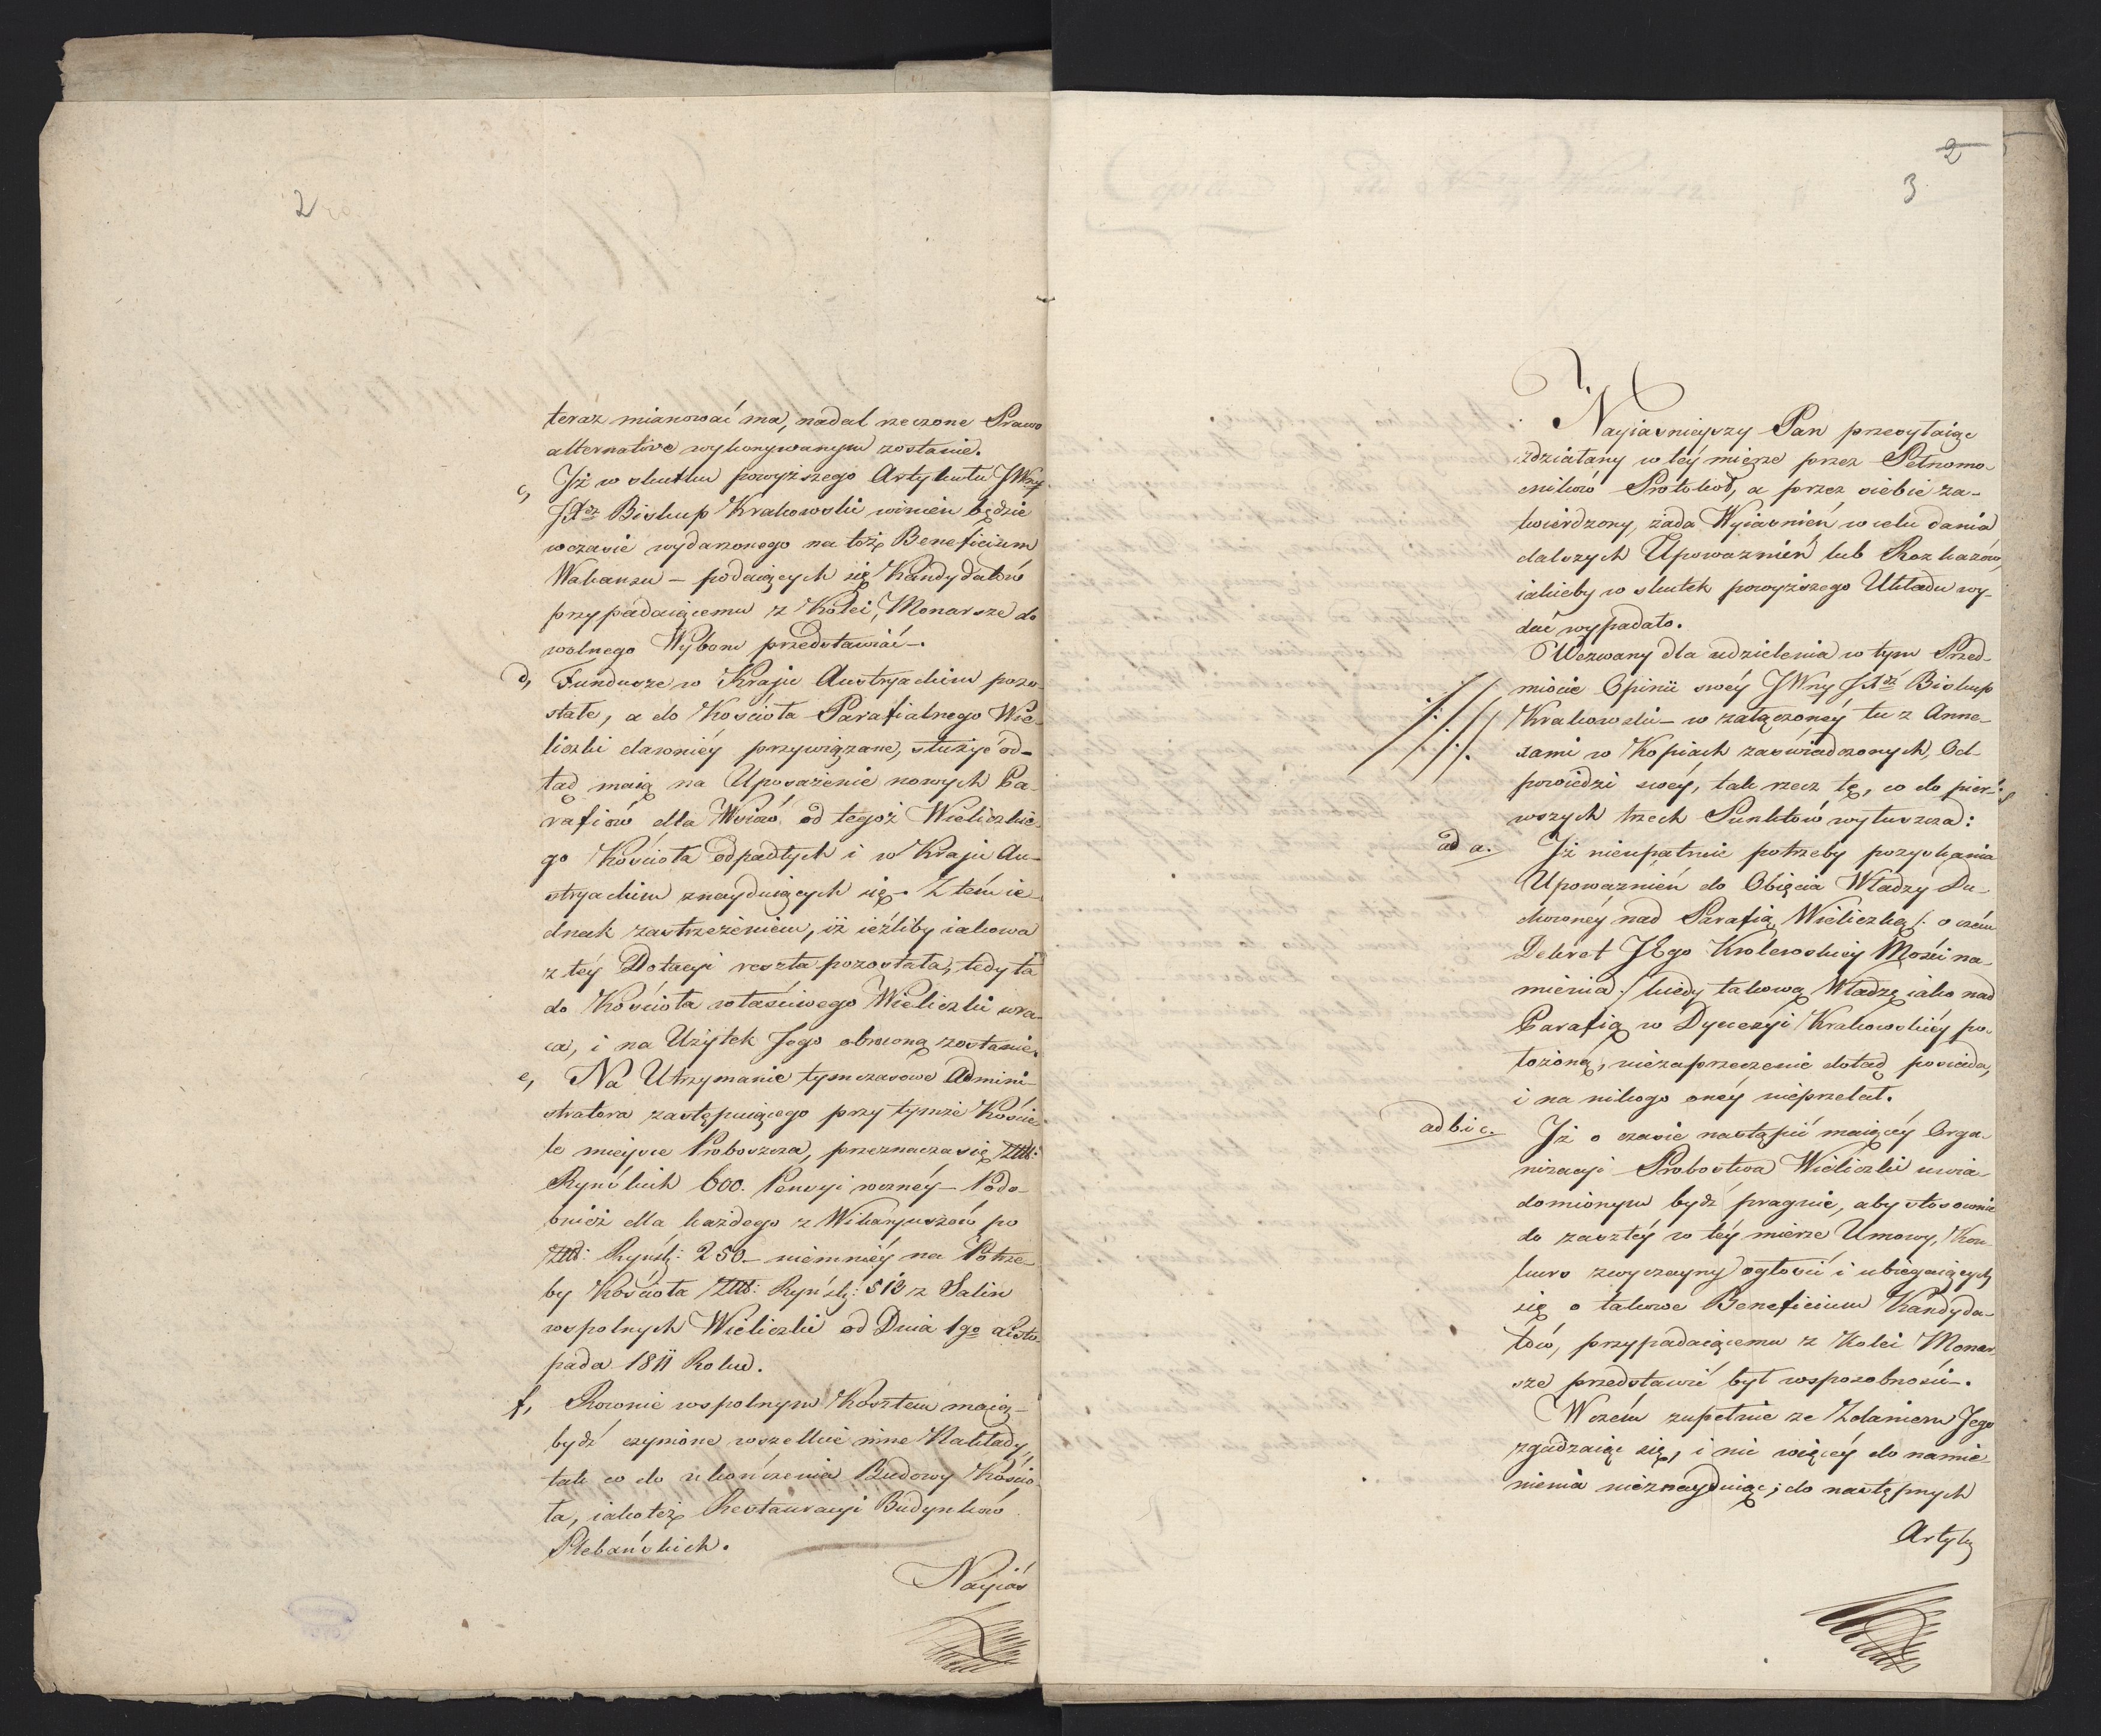 2
teraz mianować ma, nadal rzeczone Prawo
alternative wykonywanym zostanie.
c, Iż w skutku powyższego Artykułu JWny
JXdz Biskup Krakowski winien będzie
wczasie wydarzonego na tóż Beneficium
Wakansu – podaiących się Kandydatów
przypadaiącemu z Kolei, Monarsze do
wolnego Wyboru przedstawiać –.
d, Fundusze w Kraju Austryackim pozo-
stałe, a do Kościoła Parafialnego Wie-
liczki dawniéy przywiązane, służyć od-
tąd maią na Uposażenie nowych Pa-
rafiów dla Wsiów od tegoż Wieliczkie-
go Kościoła odpadłych i w Kraju Au-
stryackim znayduiących się –. Z tém ie-
dnak zastrzeżeniem, iż ieźliby iakowa
z téy Dotacyi reszta pozostała, tedy ta
do Kościoła właściwego Wieliczki wra-
ca, i na Użytek Jego obróconą zostanie.
e, Na Utrzymanie tymczasowe Admini-
stratora zastępuiącego przy tymże Koście-
le mieysce Proboszcza, przeznacza się Złł:
Ryńskich 600. Pensyi roczney – Podo-
bnież dla każdego z Wikaryuszów po
Złł: Ryńsk: 250 – niemniéy na Potrze-
by Kościoła Złł: Ryńsk: 513 z Salin
wspolnych Wieliczki od Dnia 1go Listo-
pada 1811 Roku.
f, Rownie wspolnym Kosztem maią
bydź czynione wszelkie inne Nakłady,
tak co do ukończenia Budowy Kościo-
ła, iakoteż Restauracyi Budynków
Plebańskich.
Nayiaś
2
3
Nayiaśnieyszy Pan przesyłaiąc
zdziałany w téy mierze przez Pełnomo-
cników Protokoł, a przez siebie za-
twierdzony, żąda Wyiaśnień w celu dania
dalszych Upoważnień lub Rozkazów,
iakieby w skutek powyższego Układu wy-
dać wypadało.
Wezwany dla udzielenia w tym Przed-
miocie Opinii swéy JWny JXdz Biskup
Krakowski – w załączonéy tu z Anne-
xami w Kopiach zaświadczonych, Od-
powiedzi swéy, tak rzecz tę, co do pier-
wszych trzech Punktów wyłuszcza:
ad a. Iż nieupatruie potrzeby pozyskania
Upoważnień do Obięcia Władzy Du-
chownéy nad Parafią Wieliczką /: o czém
Dekret JEgo Krolewskiéy Mości na-
mienia :/ kiedy takową Władzę iako nad
Parafią w Dyecezyi Krakowskiéy po-
łożoną, niezaprzeczenie dotąd posiada,
i na nikogo onéy nieprzelał.
ad b. i c. Iż o czasie nastąpić maiącéy Orga-
nizacyi Probostwa Wieliczki uwia-
domionym bydź pragnie, aby stosownie
do zaszłéy w téy mierze Umowy, Kon-
kurs zwyczayny ogłosić i ubiegaiących
się o takowe Beneficium Kandyda-
tów, przypadaiącemu z Kolei Monar-
sze przedstawić był wsposobności –.
W czém zupełnie ze Zdaniem Jego
zgadzaiąc się, i nic więcéy do namie-
nienia nieznayduiąc; do następnych
Artyk